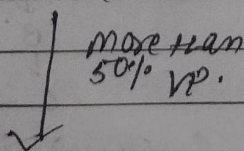 more than
50% VP.